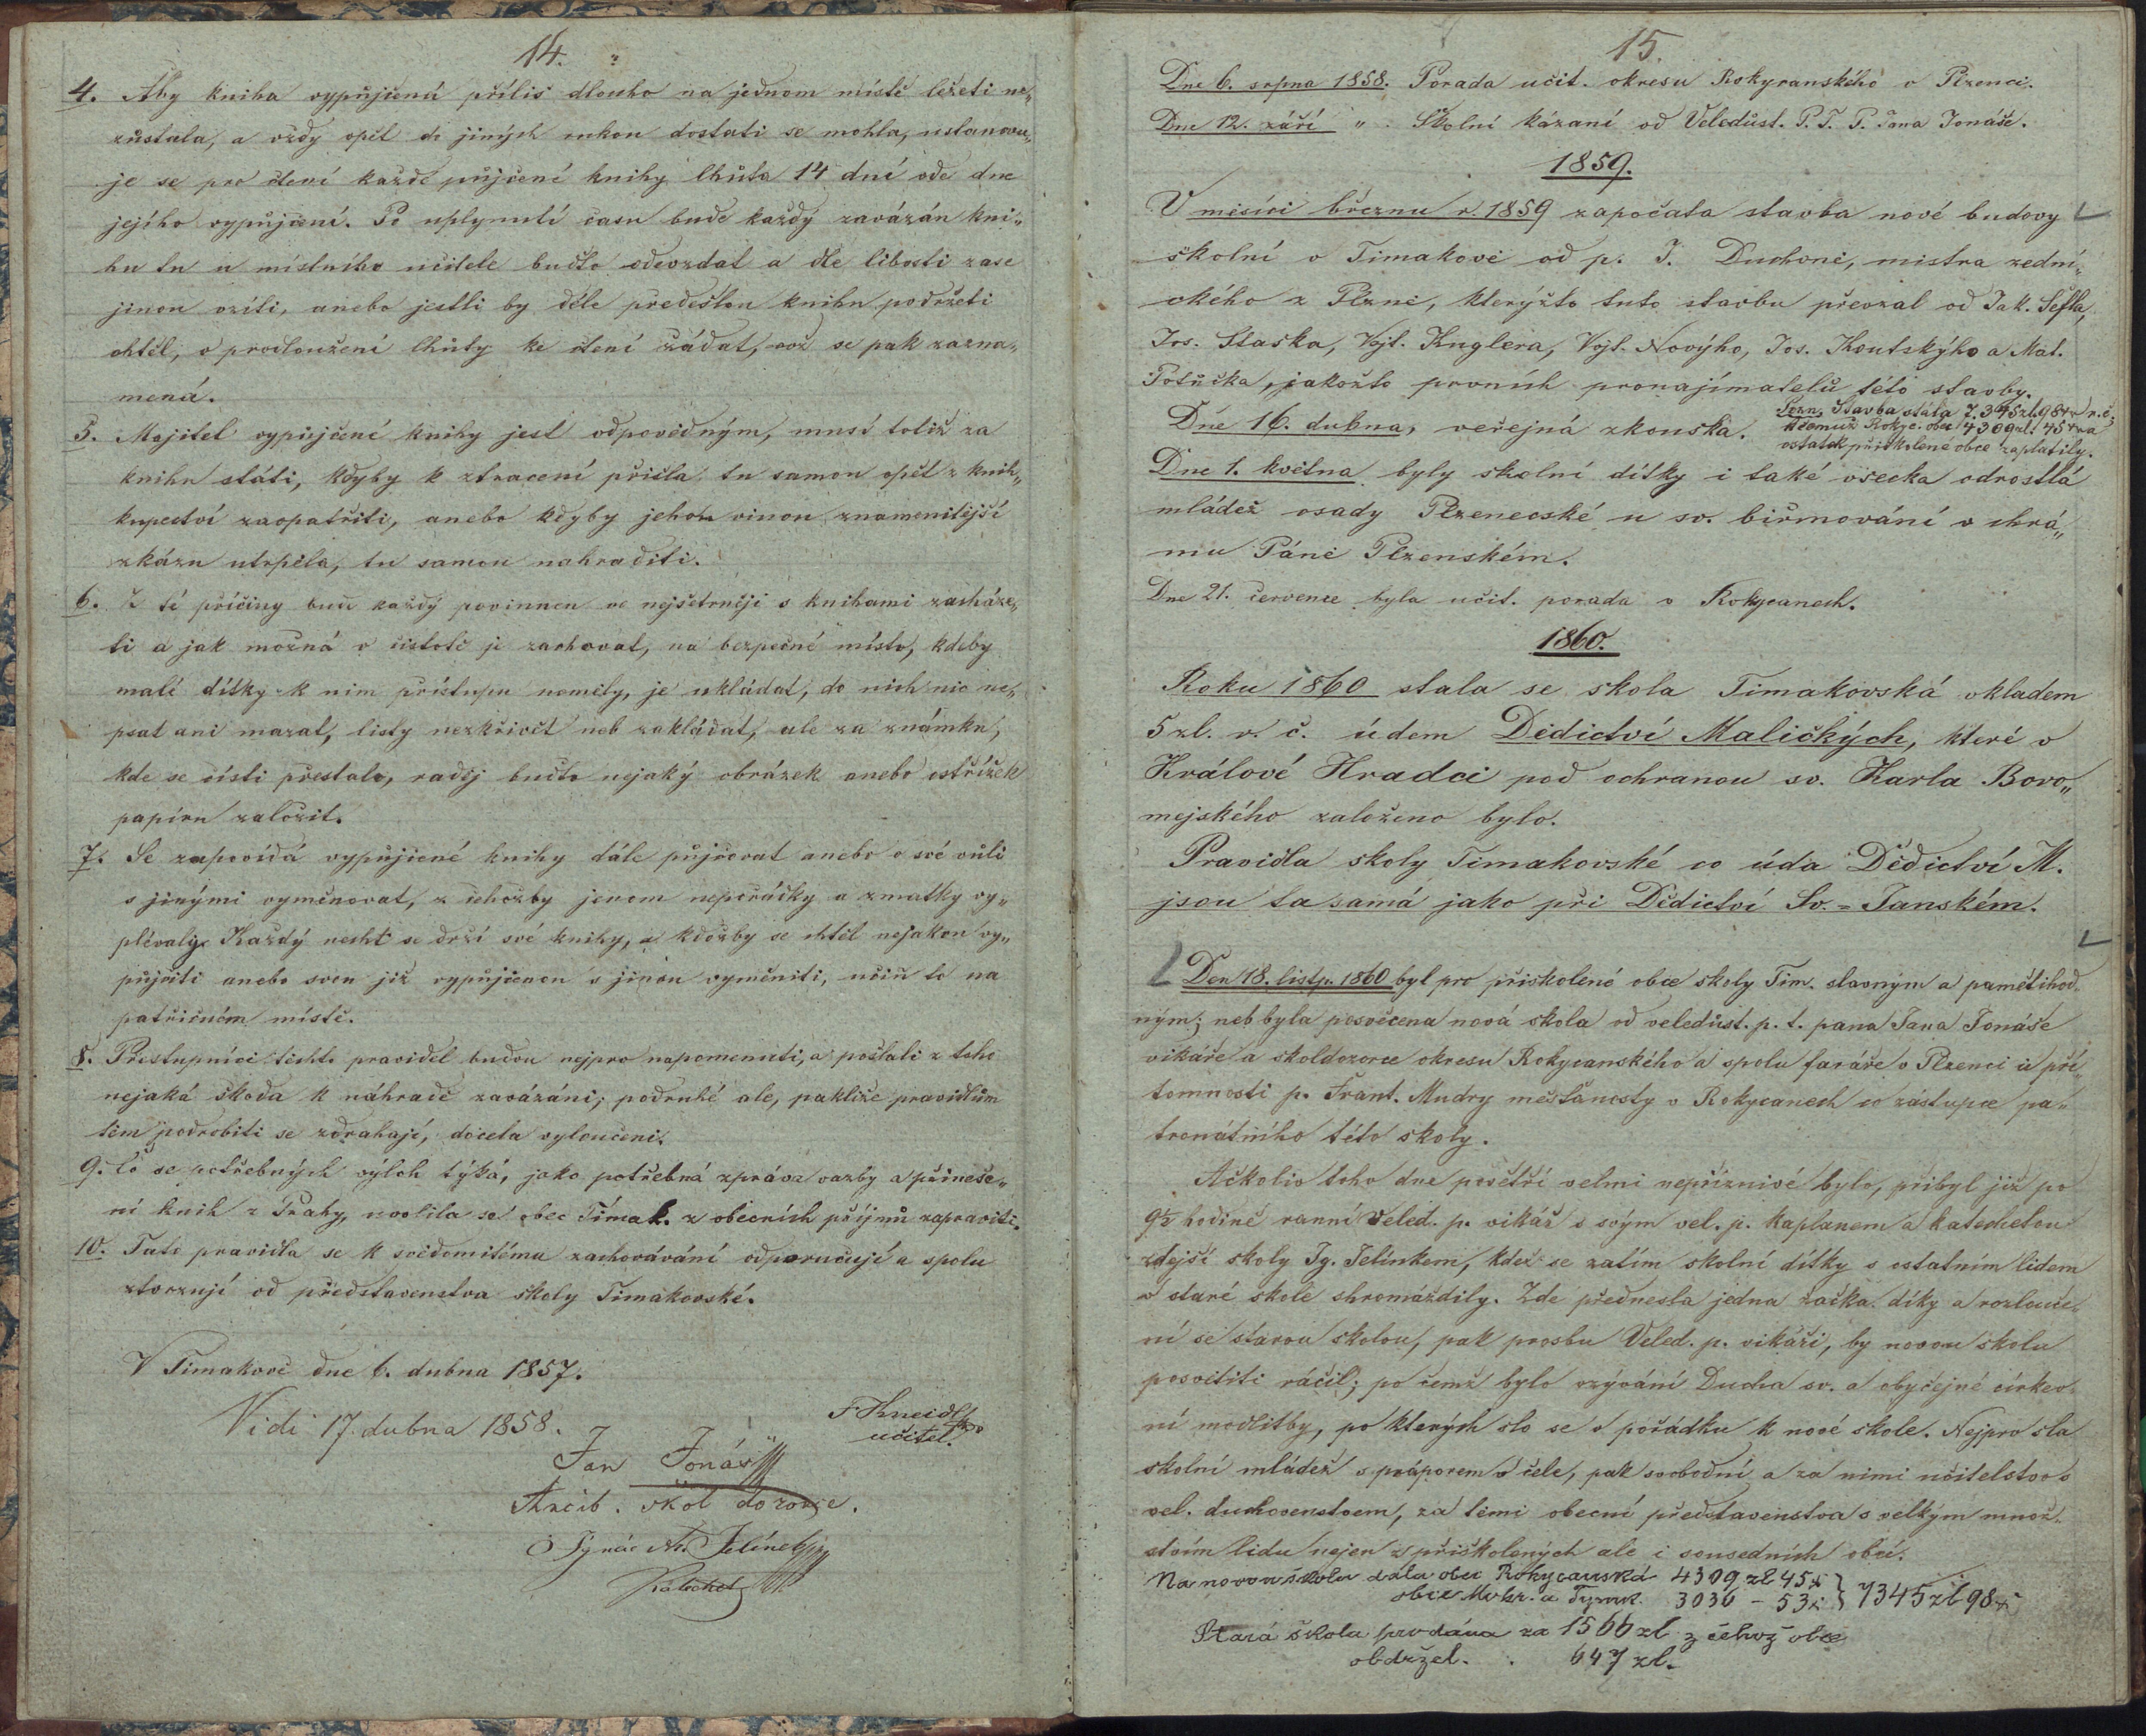 14.
4. Aby kniha vypůjčená příliš dlouho na jednom místě ležeti ne„
zůstala, a vždy opět do jiných rukou dostati se mohla, ustanovu„
je se pro čtení každé půjčené knihy lhůta 14 dní ode dne
jejího vypůjčení. Po uplynutí času bude každý zavázán kni„
hu tu u místního učitele buďto odevzdat a dle libosti zase
jinou vzíti, anebo jestli by déle předešlou knihu podržeti
chtěl, o prodloužení lhůty ke čtení žádat, což se pak zazna„
mená.
5. Majitel vypůjčené knihy jest odpovědným, musí totiž za
knihu státi, kdyby k ztracení přišla tu samou opět z knih„
kupectví zaopatřiti, anebo kdyby jehou vinou znamenitější
zkázu utrpěla, tu samou nahraditi.
6. Z té příčiny bude každý povinnen co nejšetrněji s knihami zacháze„
ti a jak možná v čistotě je zachovat, na bezpečné místo, kdeby
malé dítky k nim přístupu neměly, je ukládat, do nich nic ne„
psat ani mazat, listy nezkřivit neb zakládat, ale za známku,
kde se čísti přestalo, raděj buďto nejaký obrázek anebo ostřížek
papíru založit.
7. Se zapovídá vypůjčené knihy dále půjčovat anebo o své vůli
s jinými vyměnovat, z čehožby jenom nepořádky a zmatky vy„
plévaly. Každý necht se drží své knihy, a kdožby se chtěl nejakou vy„
půjčiti anebo svou již vypůjčenou s jinou vyměniti, učiň to na
patřičném místě.
8. Přestupníci těchto pravidel budou nejprv napomenuti, a pošlali z toho
nejaká škoda k náhradě zavázáni; podruhé ale, pakliže pravidlům
těm podrobiti se zdrahají, docela vyloučeni.
9. Co se potřebných výloh týká, jako potřebná zpráva vazby a přineše„
ní knih z Prahy, uvolila se obec Tímak. z obecních příjmů zapraviti.
10. Tato pravidla se k svědomitému zachovávání odporučují a spolu
stvrzují od představenstva školy Timakovské.
V Timakově dne 6. dubna 1857.
F Kneidl
učitel.
Vidi 17. dubna 1858.
Jan Jonáš
Arcib. škol dozorce.
Ignác Jelínek
Katechet
15.
Dne 6. srpna 1858. Porada učit. okresu Rokycanského v Plzenci.
Dne 12. září „ . Školní kázaní od Veledůst. P. T. P. Jana Jonáše.
1859.
V měsíci březnu r. 1859 započata stavba nové budovy
školní v Timakově od p. J. Duchoně, mistra zední„
ckého z Plzně, kterýžto tuto stavbu převzal od Jak. Šefla,
Jos. Staška, Vojt. Kuglera, Vojt. Nového, Jos. Koutského a Mat.
Potůčka, jakožto prvních pronajímatelů této stavby.
Pozn. Stavba stála 7.345zl. 98 kr r. č.
k čemuž Rokyc. obec 4309zl. 45 kr a
ostatek přiškolené obce zaplatily.
Dne 16. dubna, veřejná zkouška.
Dne 1. května byly školní dítky i také všecka odrostlá
mládež osady Plzenecské u sv. biřmování v chrá„
mu Páně Plzenském.
Dne 21. července byla učit. porada v Rokycanech.
1860.
Roku 1860 stala se skola Timakovská vkladem
5 zl. r. č. údem Dědictví Maličkých, které v
Králové Hradci pod ochranou sv. Karla Boro„
mejského založeno bylo.
Pravidla skoly Timakovské co úda Dědictví M.
jsou ta samá jako při Dědictví Sv.-Janském.
Den 18. listp. 1860 byl pro přiskolené obce skoly Tim. slavným a pamětihod„
ným; neb byla posvěcena nová skola od veledůst. p. t. pana Jana Jonáše
vikáře a skoldozorce okresu Rokycanského a spolu faráře v Plzenci u pří„
tomnosti p. Frant. Mudry mesťanosty v Rokycanech co zástupce pa„
tronátního této skoly.
Ačkoliv toho dne povětří velmi nepříznivé bylo, přibyl již po
9½ hodině ranní Veled. p. vikář s svým vel. p. kaplanem a katechetou
zdejší skoly Ig. Jelínkem, kdež se zatím skolní dítky s ostatním lidem
v staré skole shromáždily. Zde přednesla jedna žačka díky a rozlouče„
ní se starou skolou, pak prosbu Veled. p. vikáři, by novou skolu
posvětiti ráčil; po čemž bylo vzývání Ducha sv. a obyčejné církev„
ní modlitby, po kterých slo se v pořádku k nové skole. Nejprv sla
skolní mládež s práporem v čele, pak svobodní a za nimi učitelstvo s
vel. duchovenstvem, za těmi obecní představenstva s velkým množ„
stvím lidu nejen z přiškolených ale i sousedních obcí.
Na novou školu dala obec Rokycanská 4309 zl 45 x } 7345 zl 98 x
obce Mokr. a Tymak. 3036 - 53 x
Stará škola prodána za 1566 zl z čehož obce
obdržel. . 647 zl.